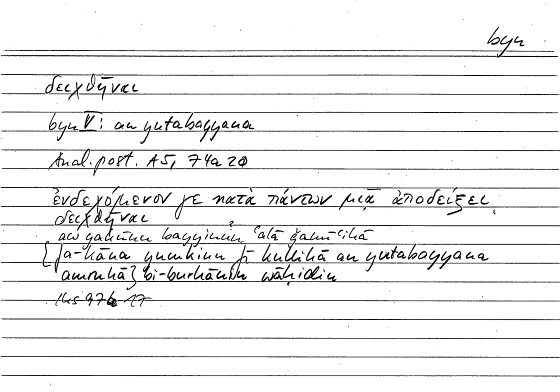 byn
δειχθῆναι
byn V: an yutabayyana
Anal. post. A5, 74a20
ἐνδεχόμενόν γε κατὰ πάντων μιᾷ ἀποδείξει
δειχθῆναι
an yakūnu bayyinun ʿalā ǧamīʿihā
{fa-kāna yumkinu fī kullihā an yutabayyana
amruhā} bi-burhānin wāḥidin